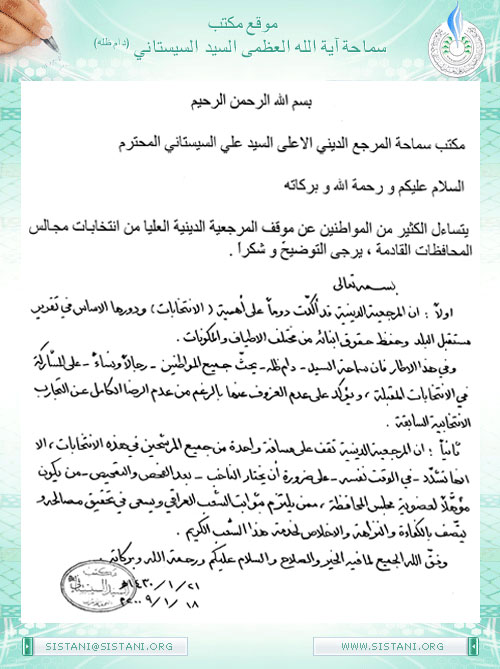 موقع مكتب
سماحة آية الله العظمى السيد السيستاني (دام ظله)
بسم الله الرحمن الرحيم
مكتب سماحة المرجع الديني الاعلى السيد علي السيستاني المحترم
السلام عليكم و رحمة الله و بركاته
يتساءل الكثير من المواطنين عن موقف المرجعية الدينية العليا من انتخابات مجالس
المحافظات القادمة ، يرجى التوضيح و شكراً .
بسمه تعالى
اولاً : ان المرجعية الدينية قد أكّدت دوماً على أهمية ( الانتخابات ) ودورها الاساس في تقرير
مستقبل البلد وحفظ حقوق ابنائه من مختلف الاطياف والمكونات .
وفي هذا الاطار فان سماحة السيد - دام ظله - يحثّ جميع المواطنين - رجالاً ونساءً - على المشاركة
في الانتخابات المقبلة ، ويؤكد على عدم العزوف عنها بالرغم من عدم الرضا الكامل عن التجارب
الانتخابية السابقة .
ثانياً : ان المرجعية الدينية تقف على مسافة واحدة من جميع المرشحين في هذه الانتخابات ، الا
انها تشدّد - في الوقت نفسه - على ضرورة أن يختار الناخب - بعد الفحص والتمحيص - من يكون
مؤهلاً لعضوية مجلس المحافظة ، ممن يلتزم بثوابت الشعب العراقي ويسعى في تحقيق مصالحه و
يتّصف بالكفاءة والنزاهة والاخلاص لخدمة هذا الشعب الكريم .
وفّق الله الجميع لما فيه الخير والصلاح والسلام عليكم ورحمة الله وبركاته .
٢١/١/١٤٣٠هـ
١٨/١/٢٠٠٩
مكتب
السيد السيستاني
SISTANI@SISTANI.ORG
WWW.SISTANI.ORG